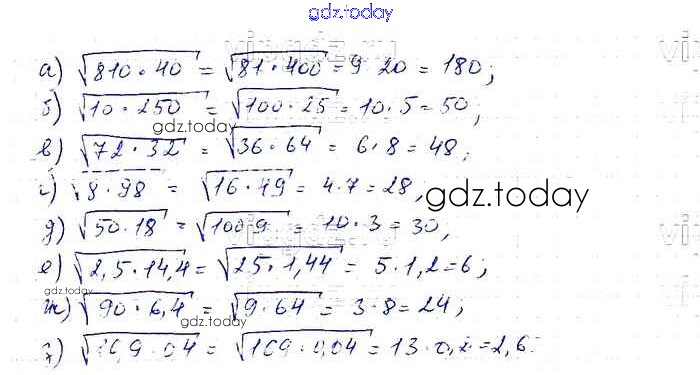 gdz.today
а) √810·40 = √81·400 = 9 20 = 180;
б) √10·250 = √100·25 = 10·5 = 50;
gdz.today
в) √72·32 = √36·64 = 6·8 = 48;
г) √8·98 = √16·49 = 4·7 = 28,
gdz.today
д) √50·18 = √100 9 = 10·3 = 30,
е) √2,5·14,4 = √25·1,44 = 5·1,2 = 6;
gdz.today
ж) √90·6,4 = √9·64 = 3·8 = 24;
gdz.today
= √169·0,04 = 13·0,2 = 2,6.